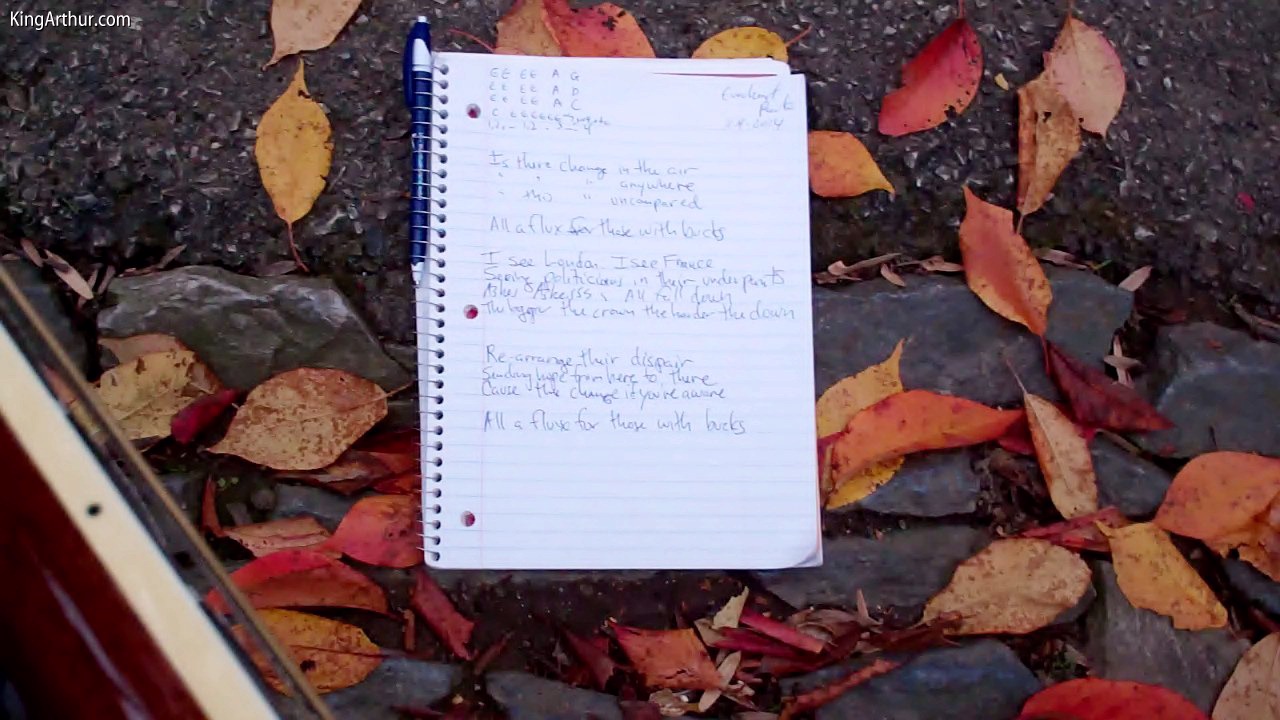 KingArthur.com
EE EE A G
EE EE A D
EE EE A C
Is there change in the air
" " " anywhere
" tho " uncompared
All a flux for those with bucks
I see London. I see France
Seeing politicians in their underpants
Ashes & Ashes All fall down
The bigger the crown the harder the down
Re-arrange their dispair
Sending hope from here to there
Cause the change if you're aware
All a flux for those with bucks